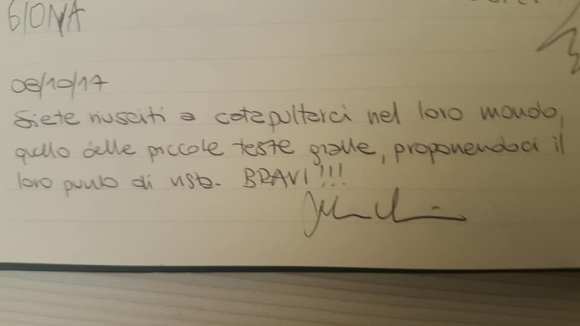 GIONA
08/10/17
Siete riusciti a catapultarci nel loro mondo,
quello delle piccole teste gialle, proponendoci il
loro punto di vista. BRAVI!!!